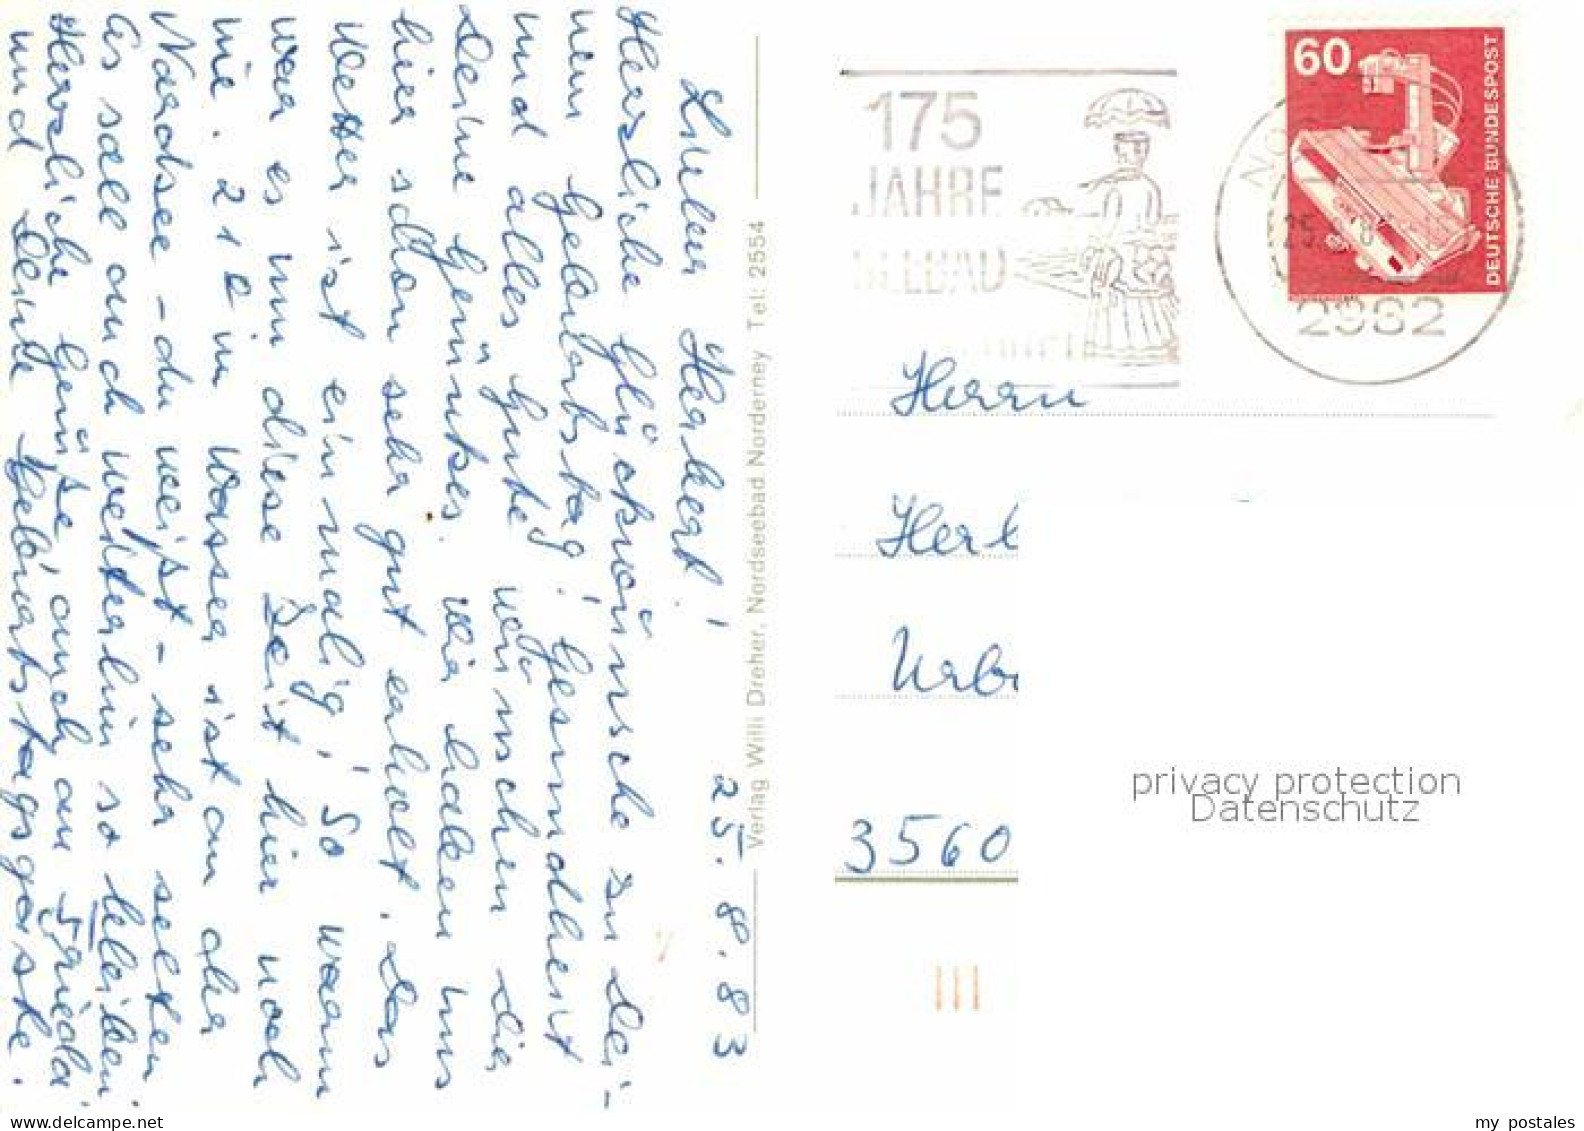 25.8.83
Lieber Herbert!
Herzliche Glückwünsche zu Dei-
nem Geburtstag! Gesundheit
und alles Gute wünschen Dir
Deine Grünkes. Wir haben uns
hier schon sehr gut erholt. Das
Wetter ist einmalig! So warm
war es um diese Zeit hier noch
nie. 21° im Wasser ist an der
Nordsee - du weißt - sehr selten
Es soll auch weiterhin so bleiben
Herzliche Grüße, auch an Frieda
und Deine Geburtstagsgäste.
Verlag Willi Dreher, Nordseebad Norderney Tel: 2554
175
JAHRE
SEEBAD
60
DEUTSCHE BUNDESPOST
2982
Herrn
Herb
Urb
3560
privacy protection
Datenschutz
my postales